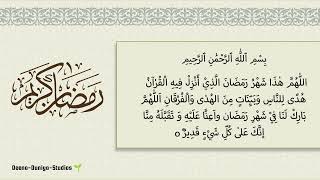 رمضان كريم
بِسْمِ ٱللَّٰهِ ٱلرَّحْمَٰنِ ٱلرَّحِيمِ
اَللّٰهُمَّ هٰذَا شَهْرُ رَمَضَانَ الَّذِيْ أَنْزِلَ فِيهِ الْقُرْآنُ
هُدًى لِلنَّاسِ وَبَيِّنَاتٍ مِنَ الْهُدٰى وَالْفُرْقَانِ اَللّٰهُمَّ
بَارِكْ لَنَا فِيْ شَهْرِ رَمَضَانَ وَاَعِنَّا عَلَيْهِ وَ تَقَبَّلْهُ مِنَّا
إِنَّكَ عَلَى كُلِّ شَيْءٍ قَدِيرٌ ه
Deene-Duniya-Studios